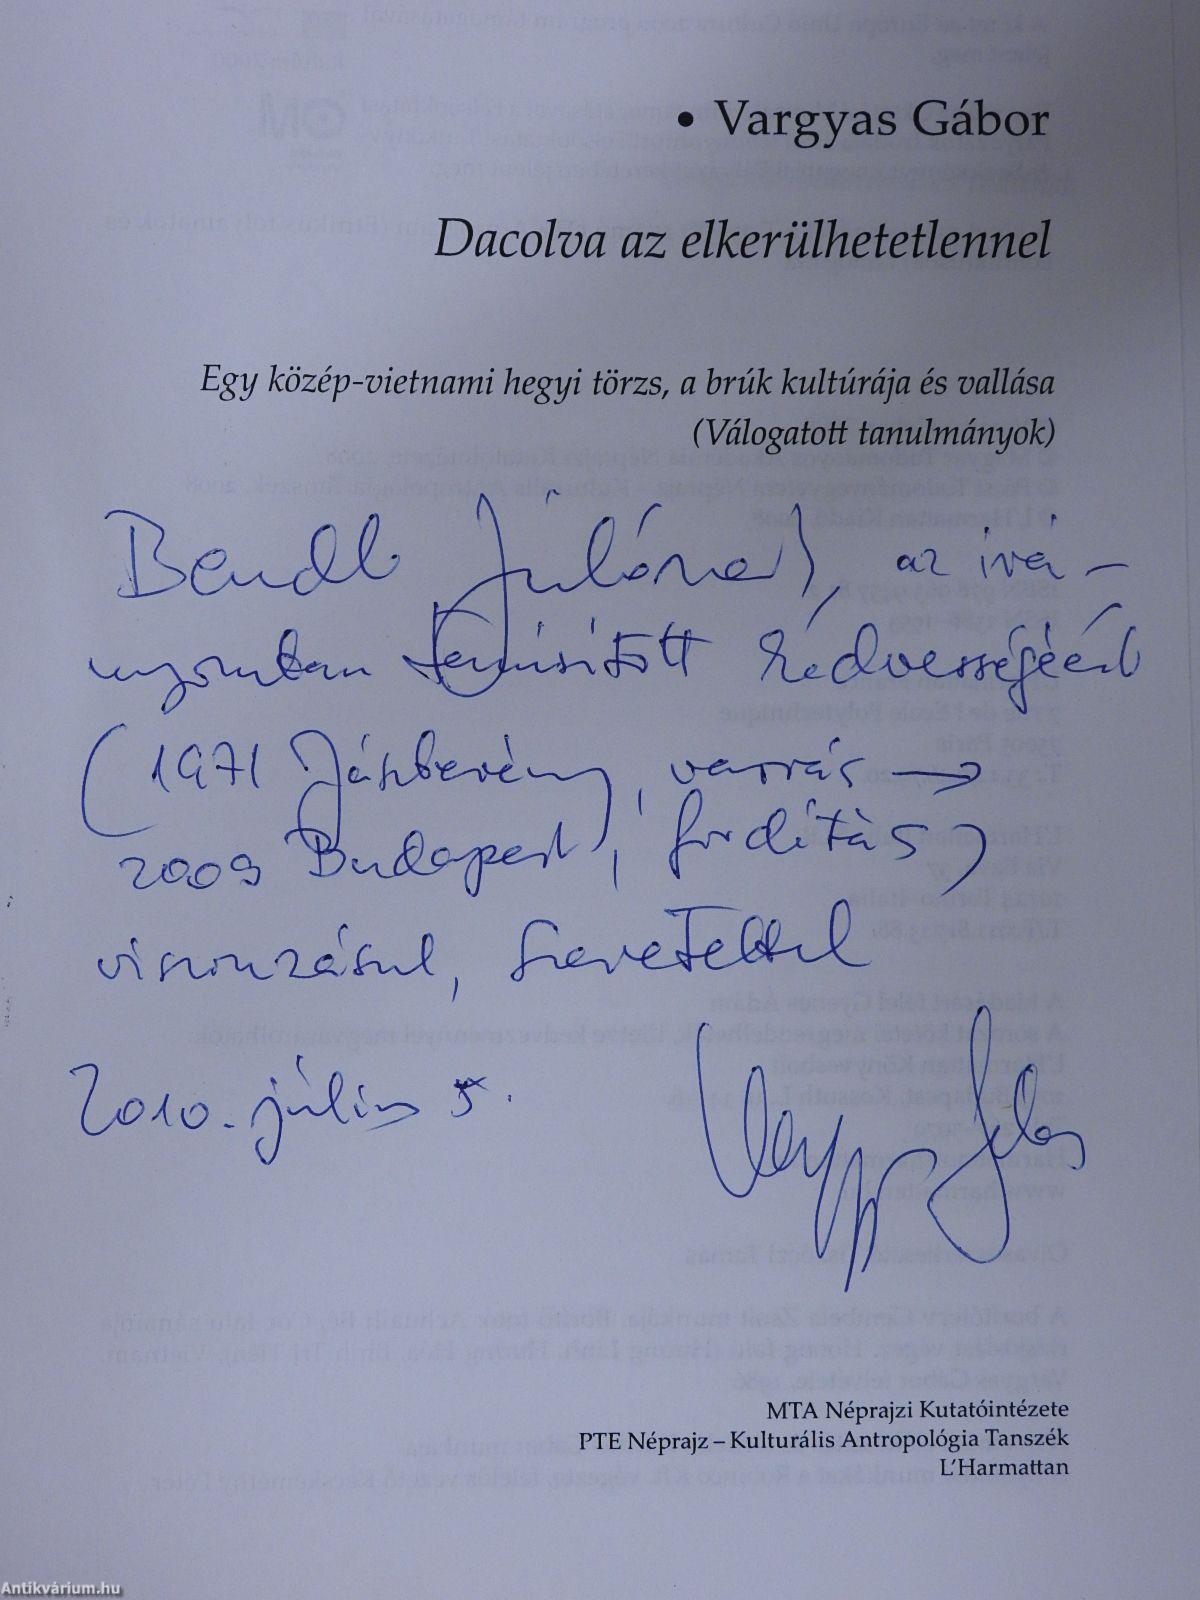 • Vargyas Gábor
Dacolva az elkerülhetetlennel
Egy közép-vietnami hegyi törzs, a brúk kultúrája és vallása
(Válogatott tanulmányok)
Bendl Júliának, az irá-
nyomban tanúsított kedvességéért
(1971 Jászberény, varrás →
2009 Budapest, fordítás)
viszonzásul, szeretettel
2010. július 5.
Vargyas Gábor
MTA Néprajzi Kutatóintézete
PTE Néprajz – Kulturális Antropológia Tanszék
L'Harmattan
Antikvárium.hu